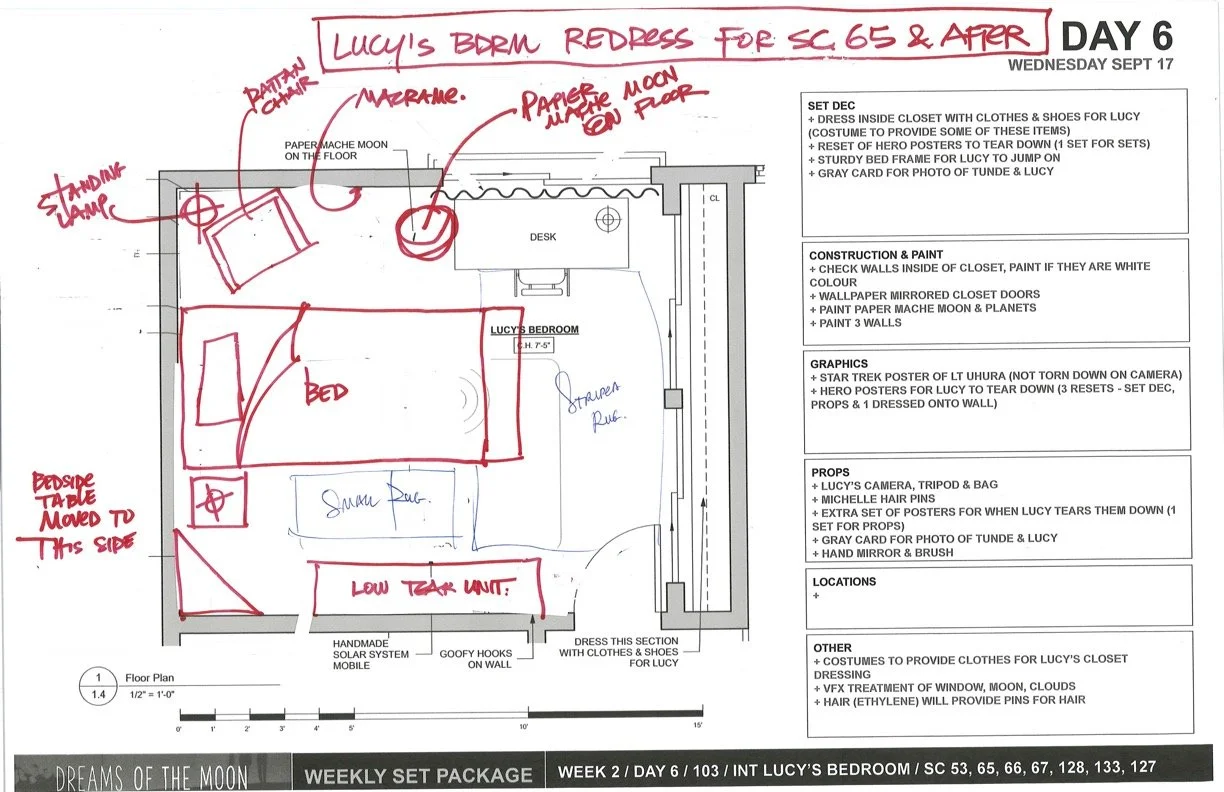 LUCY'S BDRM REDRESS FOR SC. 65 & AFTER
DAY 6
WEDNESDAY SEPT 17
RATTAN
CHAIR
MACRAME.
PAPIER
MACHE MOON
@ON FLOOR
STANDING
LAMP
PAPER MACHE MOON
ON THE FLOOR
CL
DESK
LUCY'S BEDROOM
C.H. 7'-5"
BED
STRIPED
RUG.
SMALL RUG.
BEDSIDE
TABLE
MOVED TO
THIS SIDE
LOW TEAK UNIT.
HANDMADE
SOLAR SYSTEM
MOBILE
GOOFY HOOKS
ON WALL
DRESS THIS SECTION
WITH CLOTHES & SHOES
FOR LUCY
1
1.4
Floor Plan
1/2" = 1'-0"
0' 1' 2' 3' 4' 5' 10' 15'
SET DEC
+ DRESS INSIDE CLOSET WITH CLOTHES & SHOES FOR LUCY
(COSTUME TO PROVIDE SOME OF THESE ITEMS)
+ RESET OF HERO POSTERS TO TEAR DOWN (1 SET FOR SETS)
+ STURDY BED FRAME FOR LUCY TO JUMP ON
+ GRAY CARD FOR PHOTO OF TUNDE & LUCY
CONSTRUCTION & PAINT
+ CHECK WALLS INSIDE OF CLOSET, PAINT IF THEY ARE WHITE
COLOUR
+ WALLPAPER MIRRORED CLOSET DOORS
+ PAINT PAPER MACHE MOON & PLANETS
+ PAINT 3 WALLS
GRAPHICS
+ STAR TREK POSTER OF LT UHURA (NOT TORN DOWN ON CAMERA)
+ HERO POSTERS FOR LUCY TO TEAR DOWN (3 RESETS - SET DEC,
PROPS & 1 DRESSED ONTO WALL)
PROPS
+ LUCY'S CAMERA, TRIPOD & BAG
+ MICHELLE HAIR PINS
+ EXTRA SET OF POSTERS FOR WHEN LUCY TEARS THEM DOWN (1
SET FOR PROPS)
+ GRAY CARD FOR PHOTO OF TUNDE & LUCY
+ HAND MIRROR & BRUSH
LOCATIONS
+
OTHER
+ COSTUMES TO PROVIDE CLOTHES FOR LUCY'S CLOSET
DRESSING
+ VFX TREATMENT OF WINDOW, MOON, CLOUDS
+ HAIR (ETHYLENE) WILL PROVIDE PINS FOR HAIR
DREAMS OF THE MOON
WEEKLY SET PACKAGE
WEEK 2 / DAY 6 / 103 / INT LUCY'S BEDROOM / SC 53, 65, 66, 67, 128, 133, 127